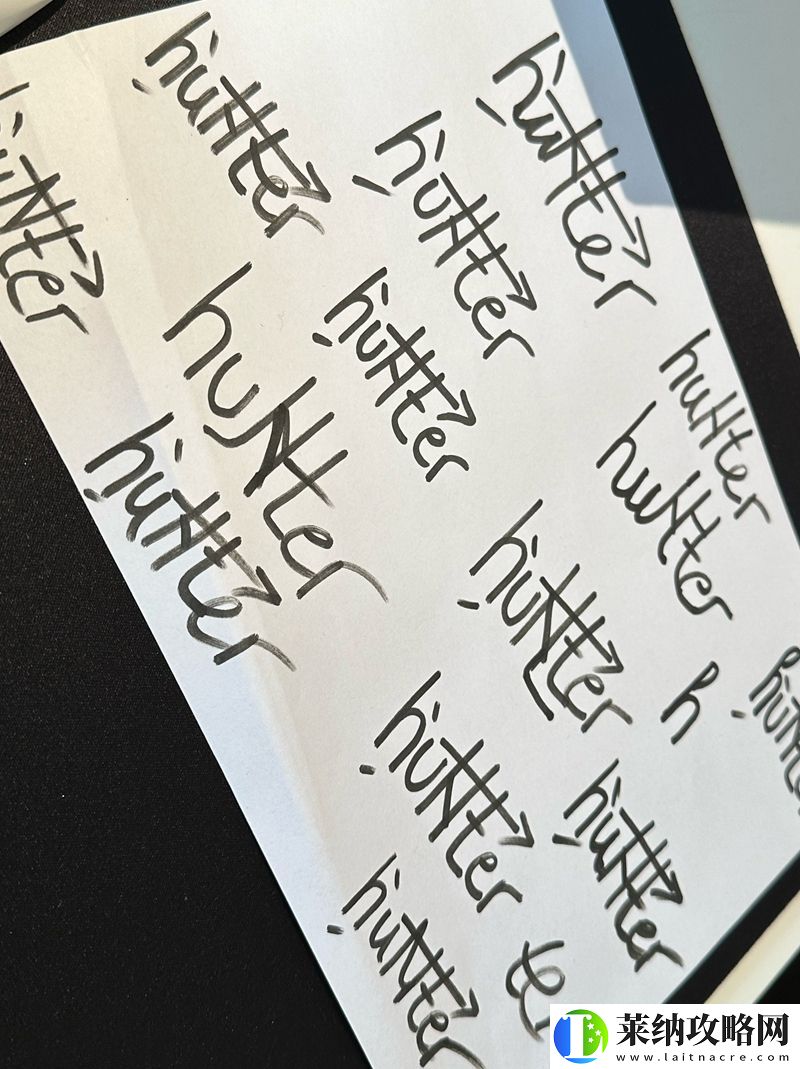 hunter
hunter
hunter
hunter
hunter
hunter
hunter
hunter
hunter
hunter
hunter
h
hunter
hunter
hunter
ter
莱纳攻略网
www.laitnacre.com